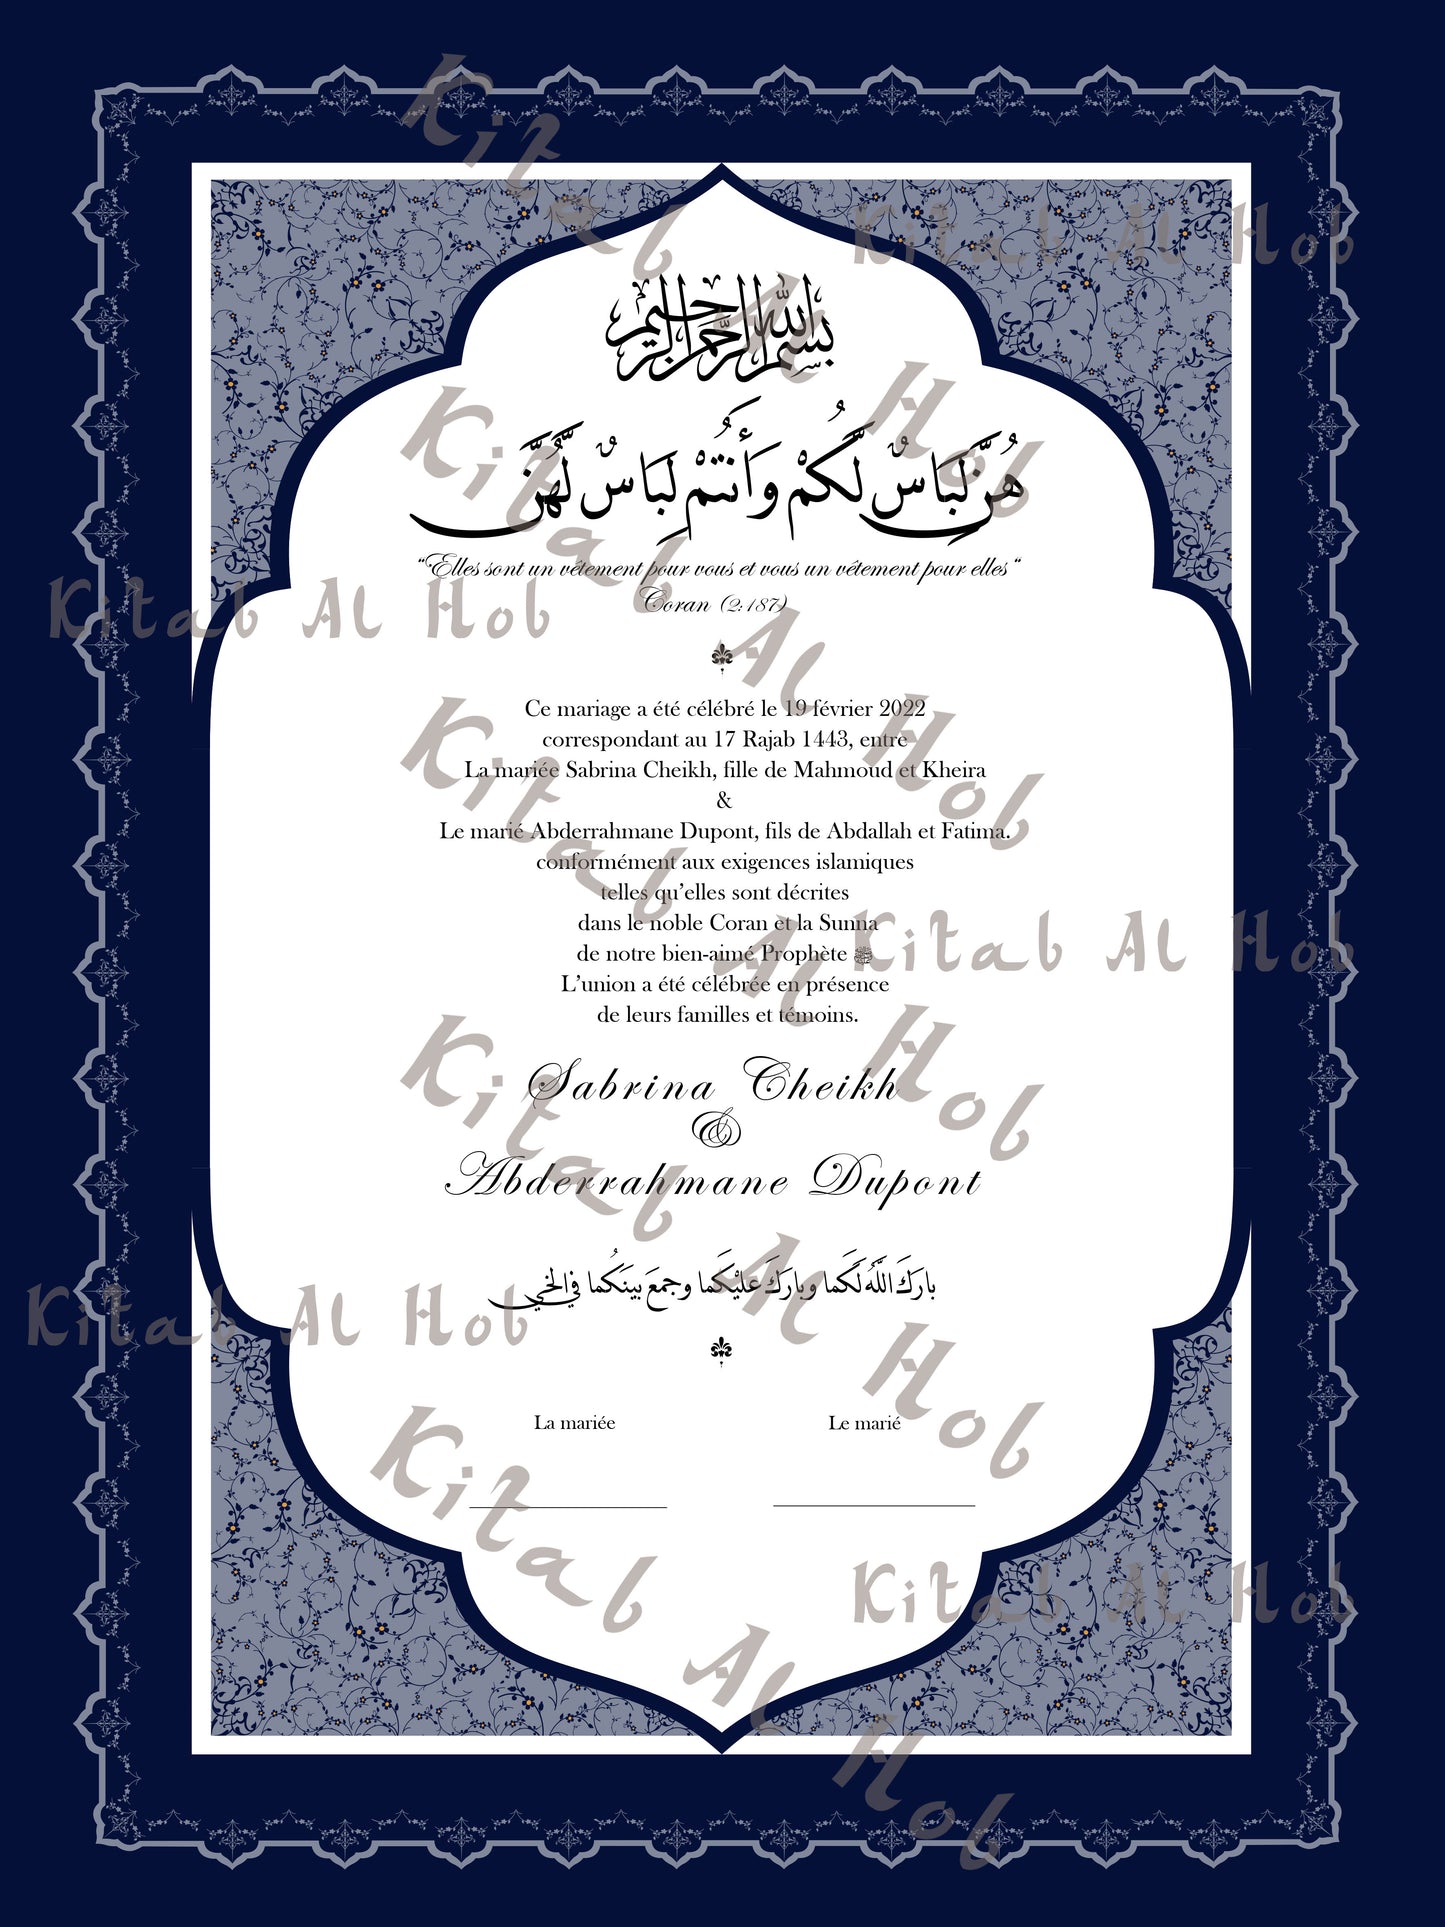 بسم الله الرحمن الرحيم
هُنَّ لِبَاسٌ لَّكُمْ وَأَنتُمْ لِبَاسٌ لَّهُنَّ
“Elles sont un vêtement pour vous et vous un vêtement pour elles“
Coran (2:187)
Ce mariage a été célébré le 19 février 2022
correspondant au 17 Rajab 1443, entre
La mariée Sabrina Cheikh, fille de Mahmoud et Kheira
&
Le marié Abderrahmane Dupont, fils de Abdallah et Fatima.
conformément aux exigences islamiques
telles qu’elles sont décrites
dans le noble Coran et la Sunna
de notre bien-aimé Prophète ﷺ
L’union a été célébrée en présence
de leurs familles et témoins.
Sabrina Cheikh
&
Abderrahmane Dupont
بارَكَ اللَّهُ لَكُما وبارَكَ عليْكُما وجمعَ بينَكُما في الخي
La mariée Le marié
Kitab Al Hob
Kitab Al Hob
Kitab Al Hob
Kitab Al Hob
Kitab Al Hob
Kitab Al Hob
Kitab Al Hob
Kitab Al Hob
Kitab Al Hob
Kitab Al Hob